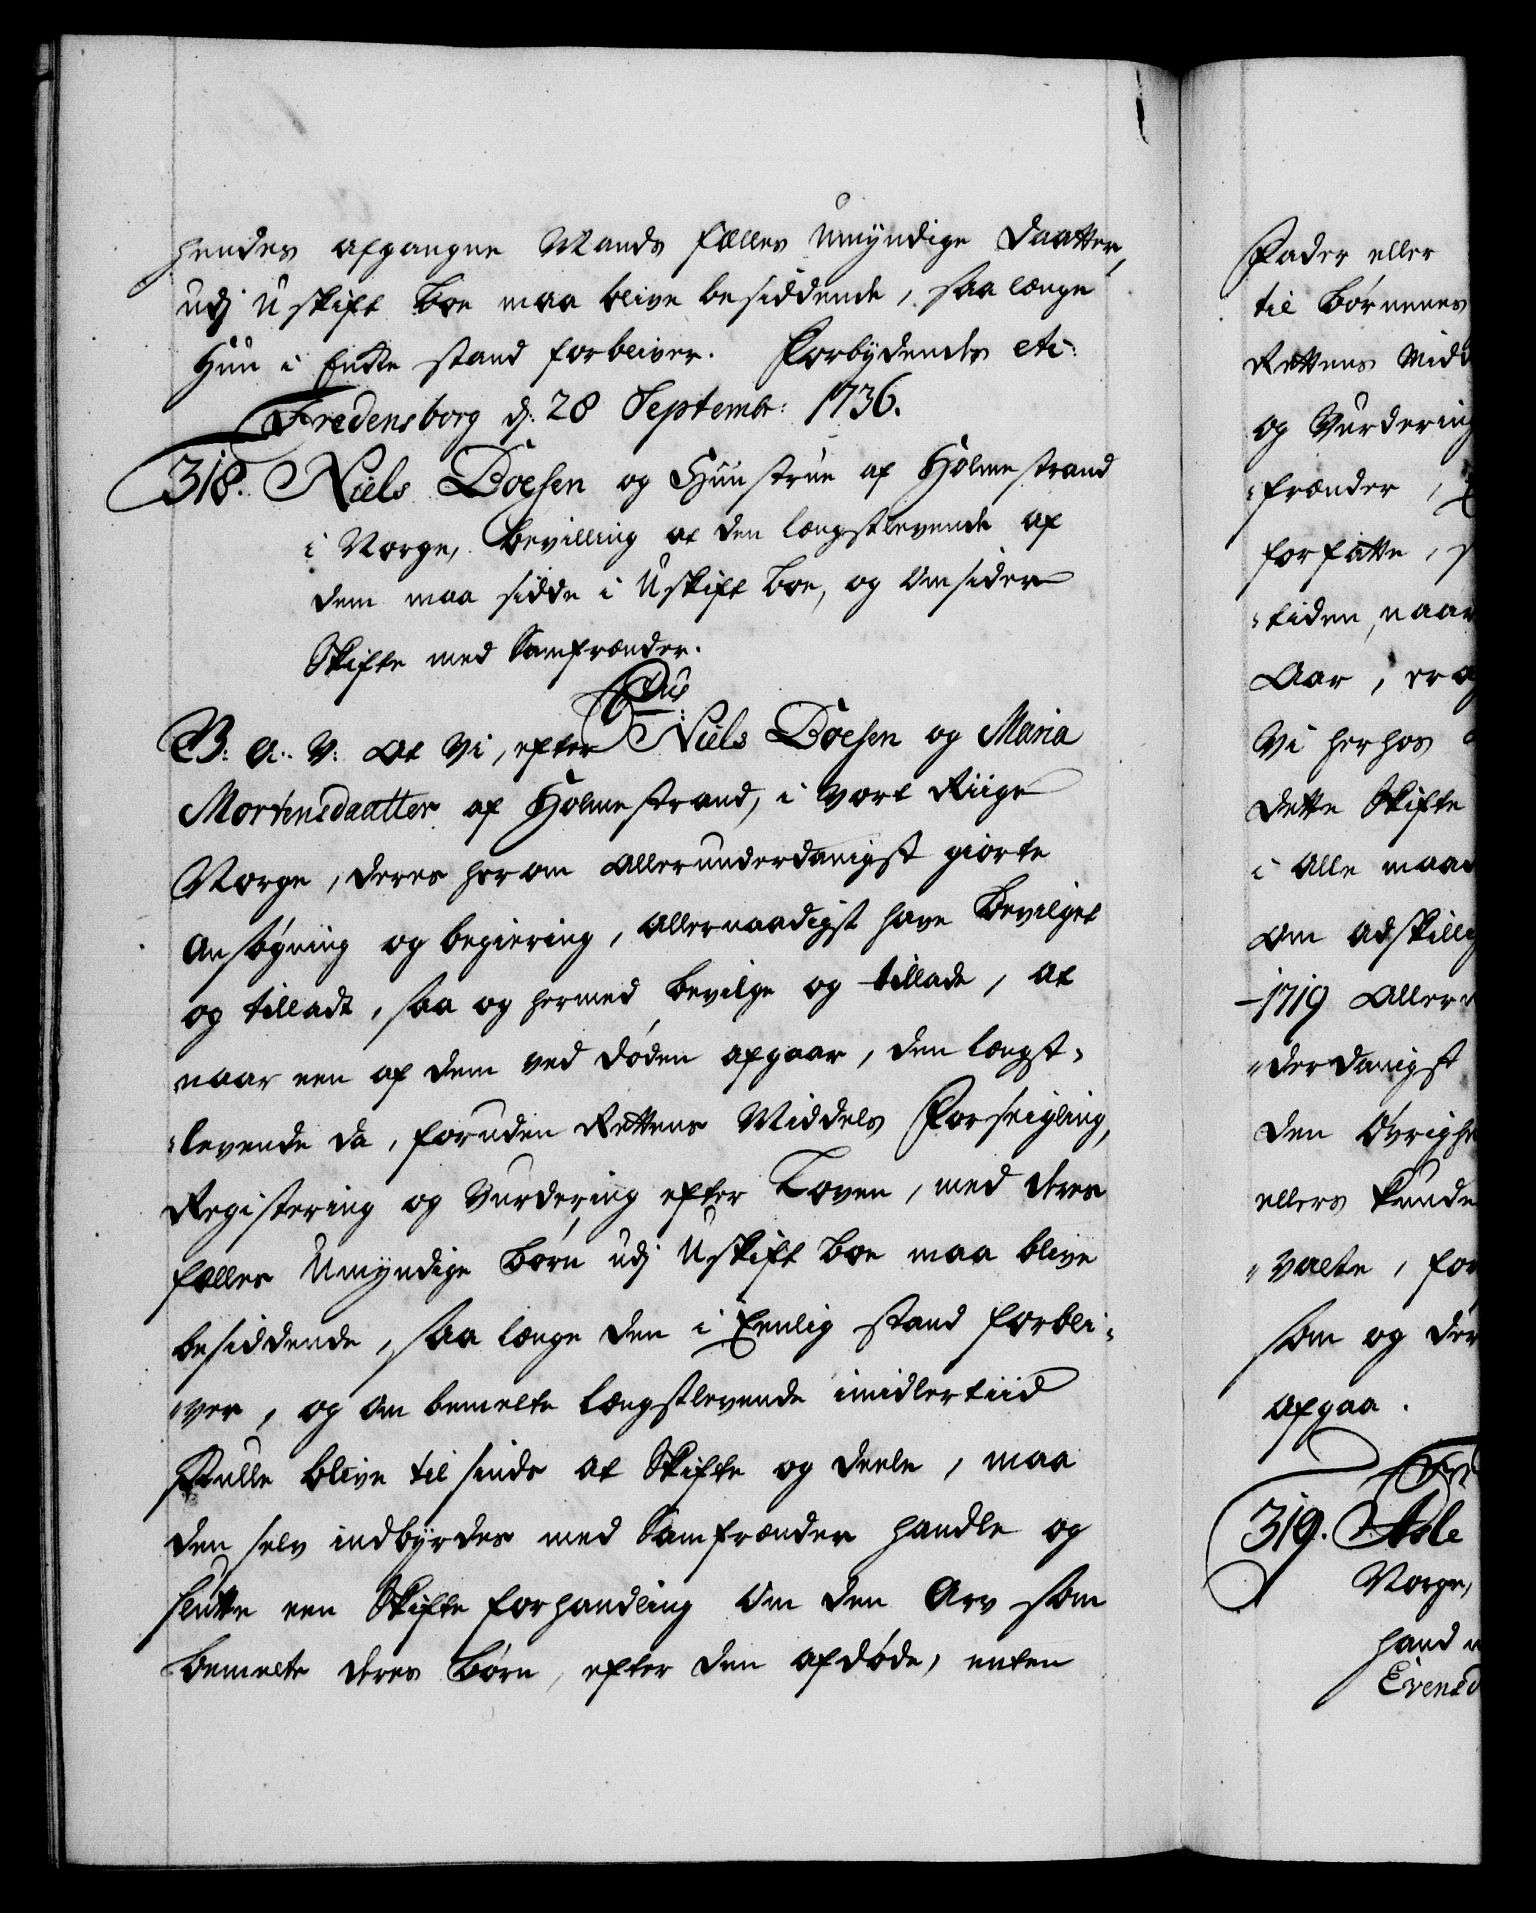 hendes afgangne Mands fælles umyndige Daatter,
udj Uskift Boe maa blive besiddende, saa længe
Hun i Enke stand forbliver. Forbydendes etc:
Fredensborg d: 28 Septembr: 1736.
318. Niels Boesen og Huustrue af Holmestrand
i Norge, Bevilling at den længstlevende af
dem maa sidde i Uskift Boe, og omsider
Skifte med Samfrænder.
B: A: V: at Vi, efter Niels Boesen og Maria
Mortensdaatter af Holmestrand, i Vort Riige
Norge, deres herom allerunderdanigst giorte
Ansøgning og begiering, allernaadigst have bevilget
og tilladt, saa og hermed bevilge og tillade, at
naar een af dem ved døden afgaar, den længst-
levende da, foruden Rettens Middels Forseigling,
Registering og Vurdering efter Loven, med deres
fælles Umyndige Børn udj Uskift Boe maa blive
besiddende, saa længe den i Eenlig stand forbli-
ver, og om bemelte længstlevende imidlertiid
skulle blive til sinds at Skifte og deele, maa
den selv indbyrdes med Samfrænder handle og
slutte een Skifte forhandling om den Arv som
bemelte deres Børn, efter den afdøde, enten
Fader eller
til børnenes
Rettens Midd
og Vurdering
frænder,
forfatte, s
tiden, naar
Aar, er
Vi herhos
dette Skifte
i alle maad
om adskillig
1719 Aller
derdanigst
den Øvrighe
ellers kunde
valte, for
som og der
afgaa.
319. Asle
Norge,
hand
Evensd